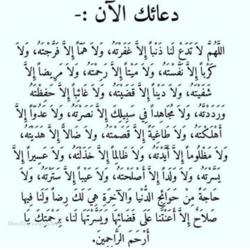 دعائك الآن :-
اللَّهُمَّ لَا تَدَعْ لَنَا ذَنْباً إِلاَّ غَفَرْتَهُ، وَلَا هَمّاً إِلاَّ فَرَّجْتَهُ، وَلَا
كَرْباً إِلاَّ نَفَّسْتَهُ، وَلَا مَيْتاً إِلاَّ رَحِمْتَهُ، وَلَا مَرِيضاً إِلاَّ
شَفَيْتَهُ، وَلَا دَيْناً إِلاَّ قَضَيْتَهُ، وَلَا غَائِباً إِلاَّ حَفِظْتَهُ
وَرَدَدْتَهُ، وَلَا مُجَاهِداً فِي سَبِيلِكَ إِلاَّ نَصَرْتَهُ، وَلَا عَدُوّاً إِلاَّ
أَهْلَكْتَهُ، وَلَا طَاغِيَةً إِلاَّ قَصَمْتَهُ، وَلَا ضَالاًّ إِلاَّ هَدَيْتَهُ،
وَلَا مَظْلُوماً إِلاَّ أَيَّدْتَهُ، وَلَا ظَالِماً إِلاَّ خَذَلْتَهُ، وَلَا عَسِيراً إِلاَّ
يَسَّرْتَهُ، وَلَا وَلَداً إِلاَّ أَصْلَحْتَهُ، وَلَا عَيْباً إِلاَّ سَتَرْتَهُ، وَلَا
حَاجَةً مِنْ حَوَائِجِ الدُّنْيَا وَالْآخِرَةِ هِيَ لَكَ رِضاً وَلَنَا فِيهَا
صَلَاحٌ إِلاَّ أَعَنْتَنَا عَلَى قَضَائِهَا وَيَسَّرْتَهَا لَنَا، بِرَحْمَتِكَ يَا
أَرْحَمَ الرَّاحِمِينَ.